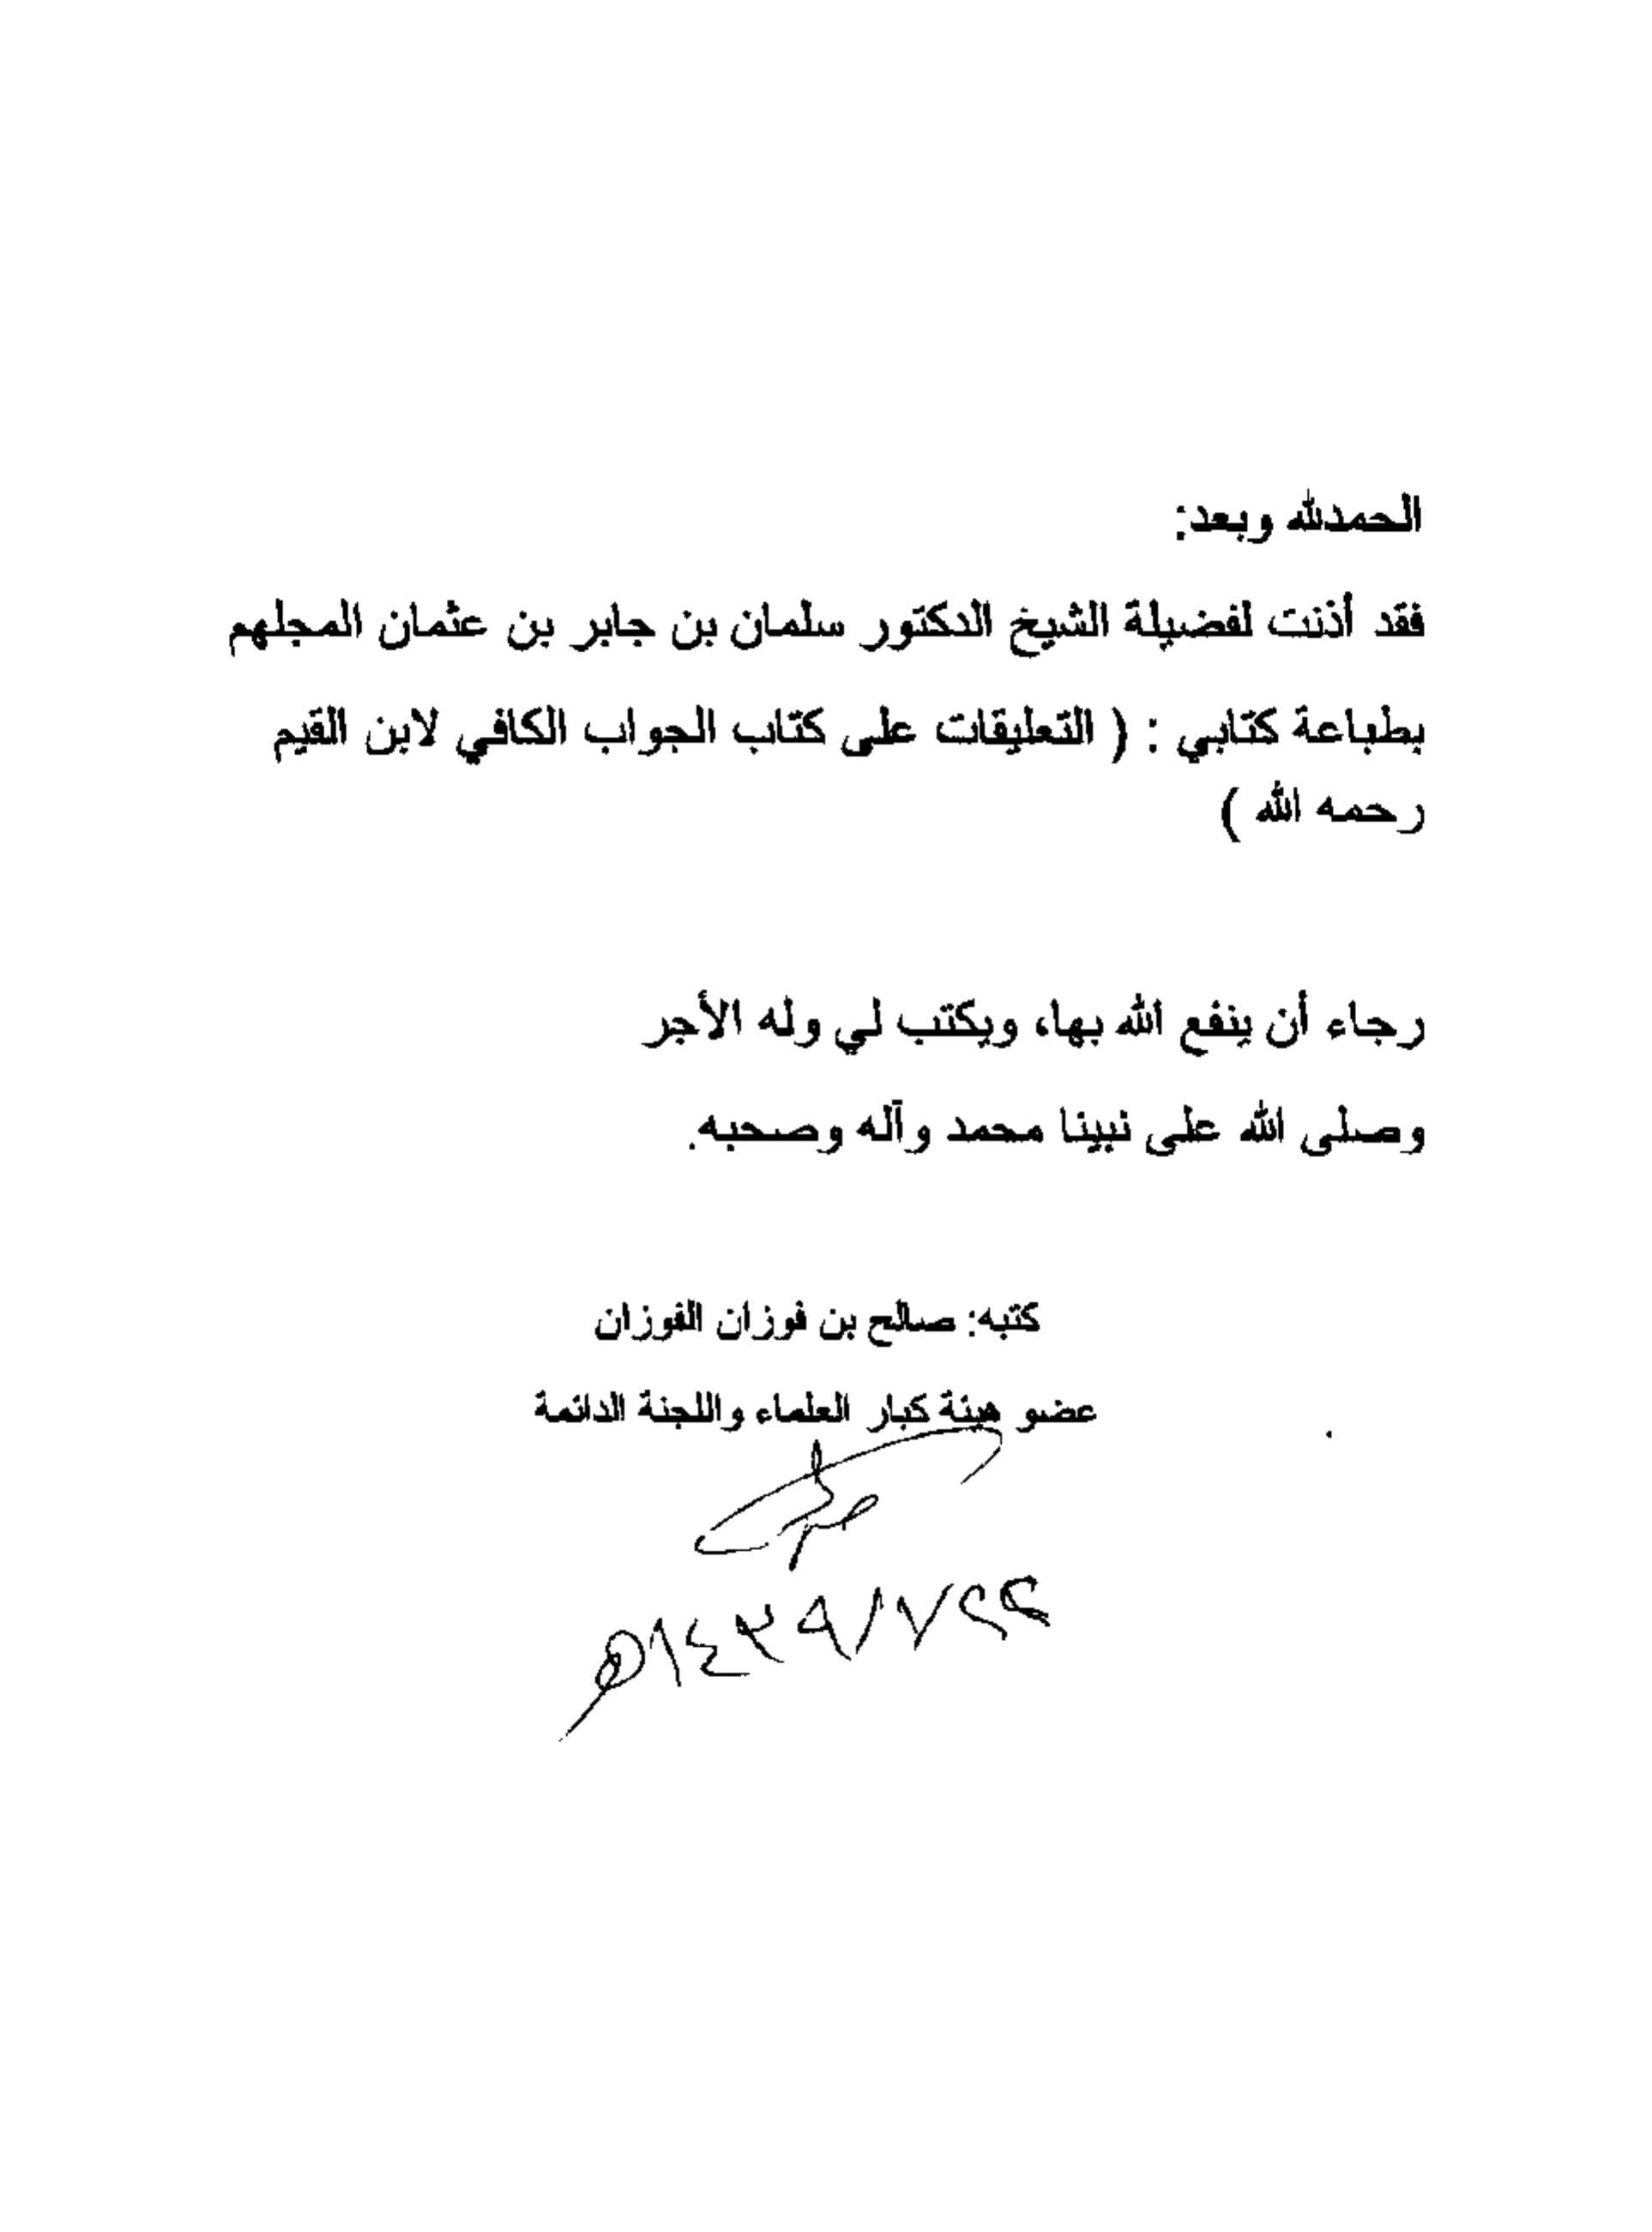 الحمدلله وبعد:
فقد أذنت لفضيلة الشيخ الدكتور سلمان بن جابر بن عثمان المجلهم
بطباعة كتابي : ( التعليقات على كتاب الجواب الكافي لابن القيم
رحمه الله )
رجاء أن ينفع الله بها، ويكتب لي وله الأجر
وصلى الله على نبينا محمد وآله وصحبه.
كتبه: صالح بن فوزان الفوزان
عضو هيئة كبار العلماء واللجنة الدائمة
١٤٣٩/٧/٢٢هـ